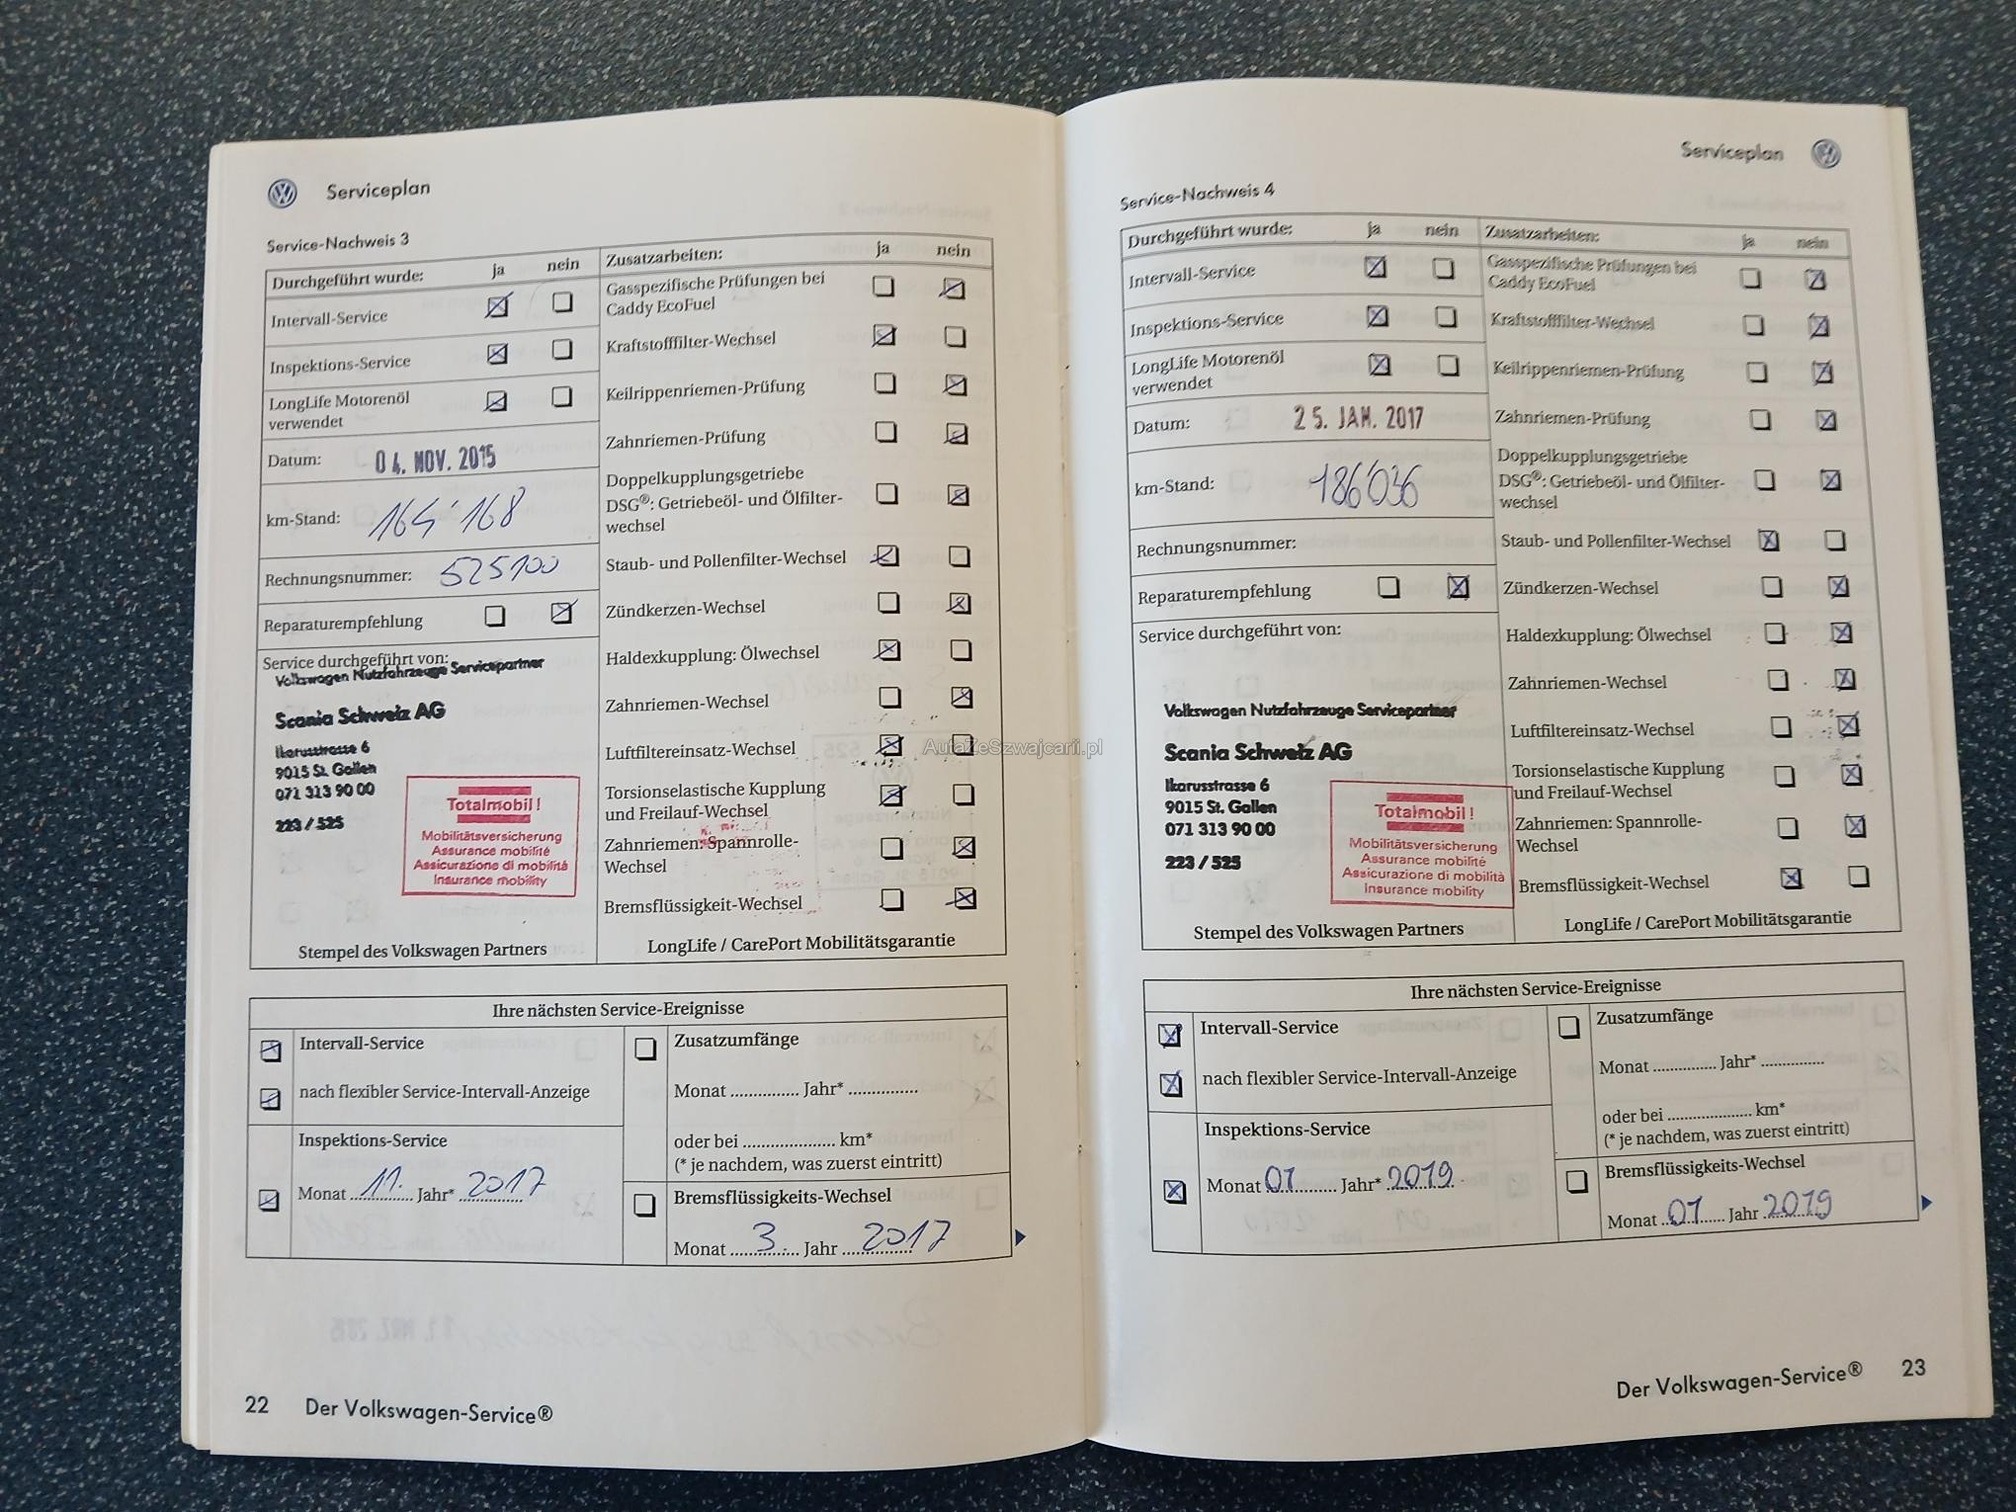 Serviceplan
Service-Nachweis 3
Durchgeführt wurde: ja nein
Intervall-Service
Inspektions-Service
LongLife Motorenöl
verwendet
Datum: 04. NOV. 2015
km-Stand: 164'168
Rechnungsnummer: 525100
Reparaturempfehlung
Service durchgeführt von:
Volkswagen Nutzfahrzeuge Servicepartner
Scania Schweiz AG
Ikarusstrasse 6
9015 St. Gallen
071 313 90 00
223 / 525
Totalmobil!
Mobilitätsversicherung
Assurance mobilité
Assicurazione di mobilità
Insurance mobility
Stempel des Volkswagen Partners
Zusatzarbeiten: ja nein
Gasspezifische Prüfungen bei
Caddy EcoFuel
Kraftstofffilter-Wechsel
Keilrippenriemen-Prüfung
Zahnriemen-Prüfung
Doppelkupplungsgetriebe
DSG®: Getriebeöl- und Ölfilter-
wechsel
Staub- und Pollenfilter-Wechsel
Zündkerzen-Wechsel
Haldexkupplung: Ölwechsel
Zahnriemen-Wechsel
Luftfiltereinsatz-Wechsel
Torsionselastische Kupplung
und Freilauf-Wechsel
Zahnriemen: Spannrolle-
Wechsel
Bremsflüssigkeit-Wechsel
LongLife / CarePort Mobilitätsgarantie
Ihre nächsten Service-Ereignisse
Intervall-Service
nach flexibler Service-Intervall-Anzeige
Inspektions-Service
Monat 11. Jahr* 2017
Zusatzumfänge
Monat ............... Jahr* ...............
oder bei .................... km*
(* je nachdem, was zuerst eintritt)
Bremsflüssigkeits-Wechsel
Monat 3. Jahr 2017
22 Der Volkswagen-Service®
AutaZeSzwajcarii.pl
Serviceplan
Service-Nachweis 4
Durchgeführt wurde: ja nein
Intervall-Service
Inspektions-Service
LongLife Motorenöl
verwendet
Datum: 25. JAN. 2017
km-Stand: 186'036
Rechnungsnummer:
Reparaturempfehlung
Service durchgeführt von:
Volkswagen Nutzfahrzeuge Servicepartner
Scania Schweiz AG
Ikarusstrasse 6
9015 St. Gallen
071 313 90 00
223 / 525
Totalmobil!
Mobilitätsversicherung
Assurance mobilité
Assicurazione di mobilità
Insurance mobility
Stempel des Volkswagen Partners
Zusatzarbeiten: ja nein
Gasspezifische Prüfungen bei
Caddy EcoFuel
Kraftstofffilter-Wechsel
Keilrippenriemen-Prüfung
Zahnriemen-Prüfung
Doppelkupplungsgetriebe
DSG®: Getriebeöl- und Ölfilter-
wechsel
Staub- und Pollenfilter-Wechsel
Zündkerzen-Wechsel
Haldexkupplung: Ölwechsel
Zahnriemen-Wechsel
Luftfiltereinsatz-Wechsel
Torsionselastische Kupplung
und Freilauf-Wechsel
Zahnriemen: Spannrolle-
Wechsel
Bremsflüssigkeit-Wechsel
LongLife / CarePort Mobilitätsgarantie
Ihre nächsten Service-Ereignisse
Intervall-Service
nach flexibler Service-Intervall-Anzeige
Inspektions-Service
Monat 01 Jahr* 2019
Zusatzumfänge
Monat .............. Jahr* ..............
oder bei .................... km*
(* je nachdem, was zuerst eintritt)
Bremsflüssigkeits-Wechsel
Monat 01 Jahr 2019
Der Volkswagen-Service® 23